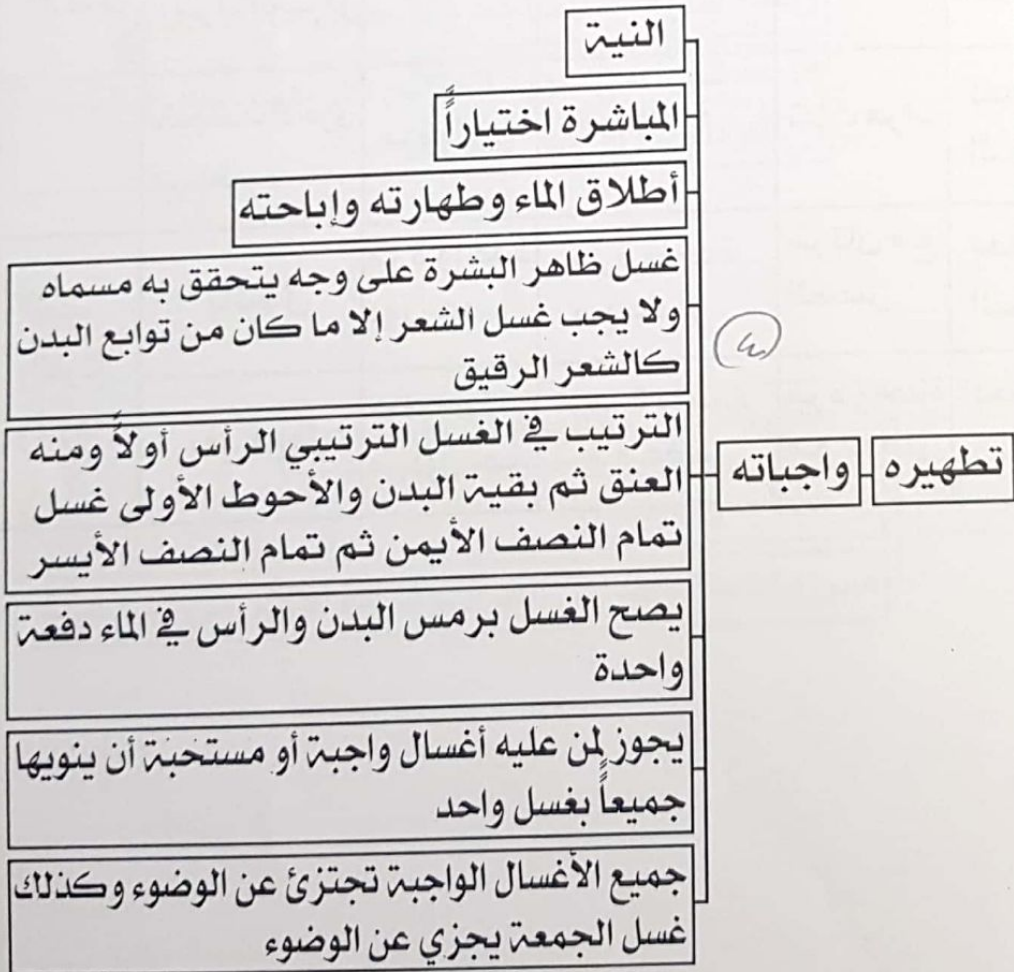 تطهيره
واجباته
النية
المباشرة اختياراً
أطلاق الماء وطهارته وإباحته
غسل ظاهر البشرة على وجه يتحقق به مسماه
ولا يجب غسل الشعر إلا ما كان من توابع البدن
كالشعر الرقيق
الترتيب في الغسل الترتيبي الرأس أولاً ومنه
العنق ثم بقية البدن والأحوط الأولى غسل
تمام النصف الأيمن ثم تمام النصف الأيسر
يصح الغسل برمس البدن والرأس في الماء دفعة
واحدة
يجوز لمن عليه أغسال واجبة أو مستحبة أن ينويها
جميعاً بغسل واحد
جميع الأغسال الواجبة تجتزئ عن الوضوء وكذلك
غسل الجمعة يجزي عن الوضوء